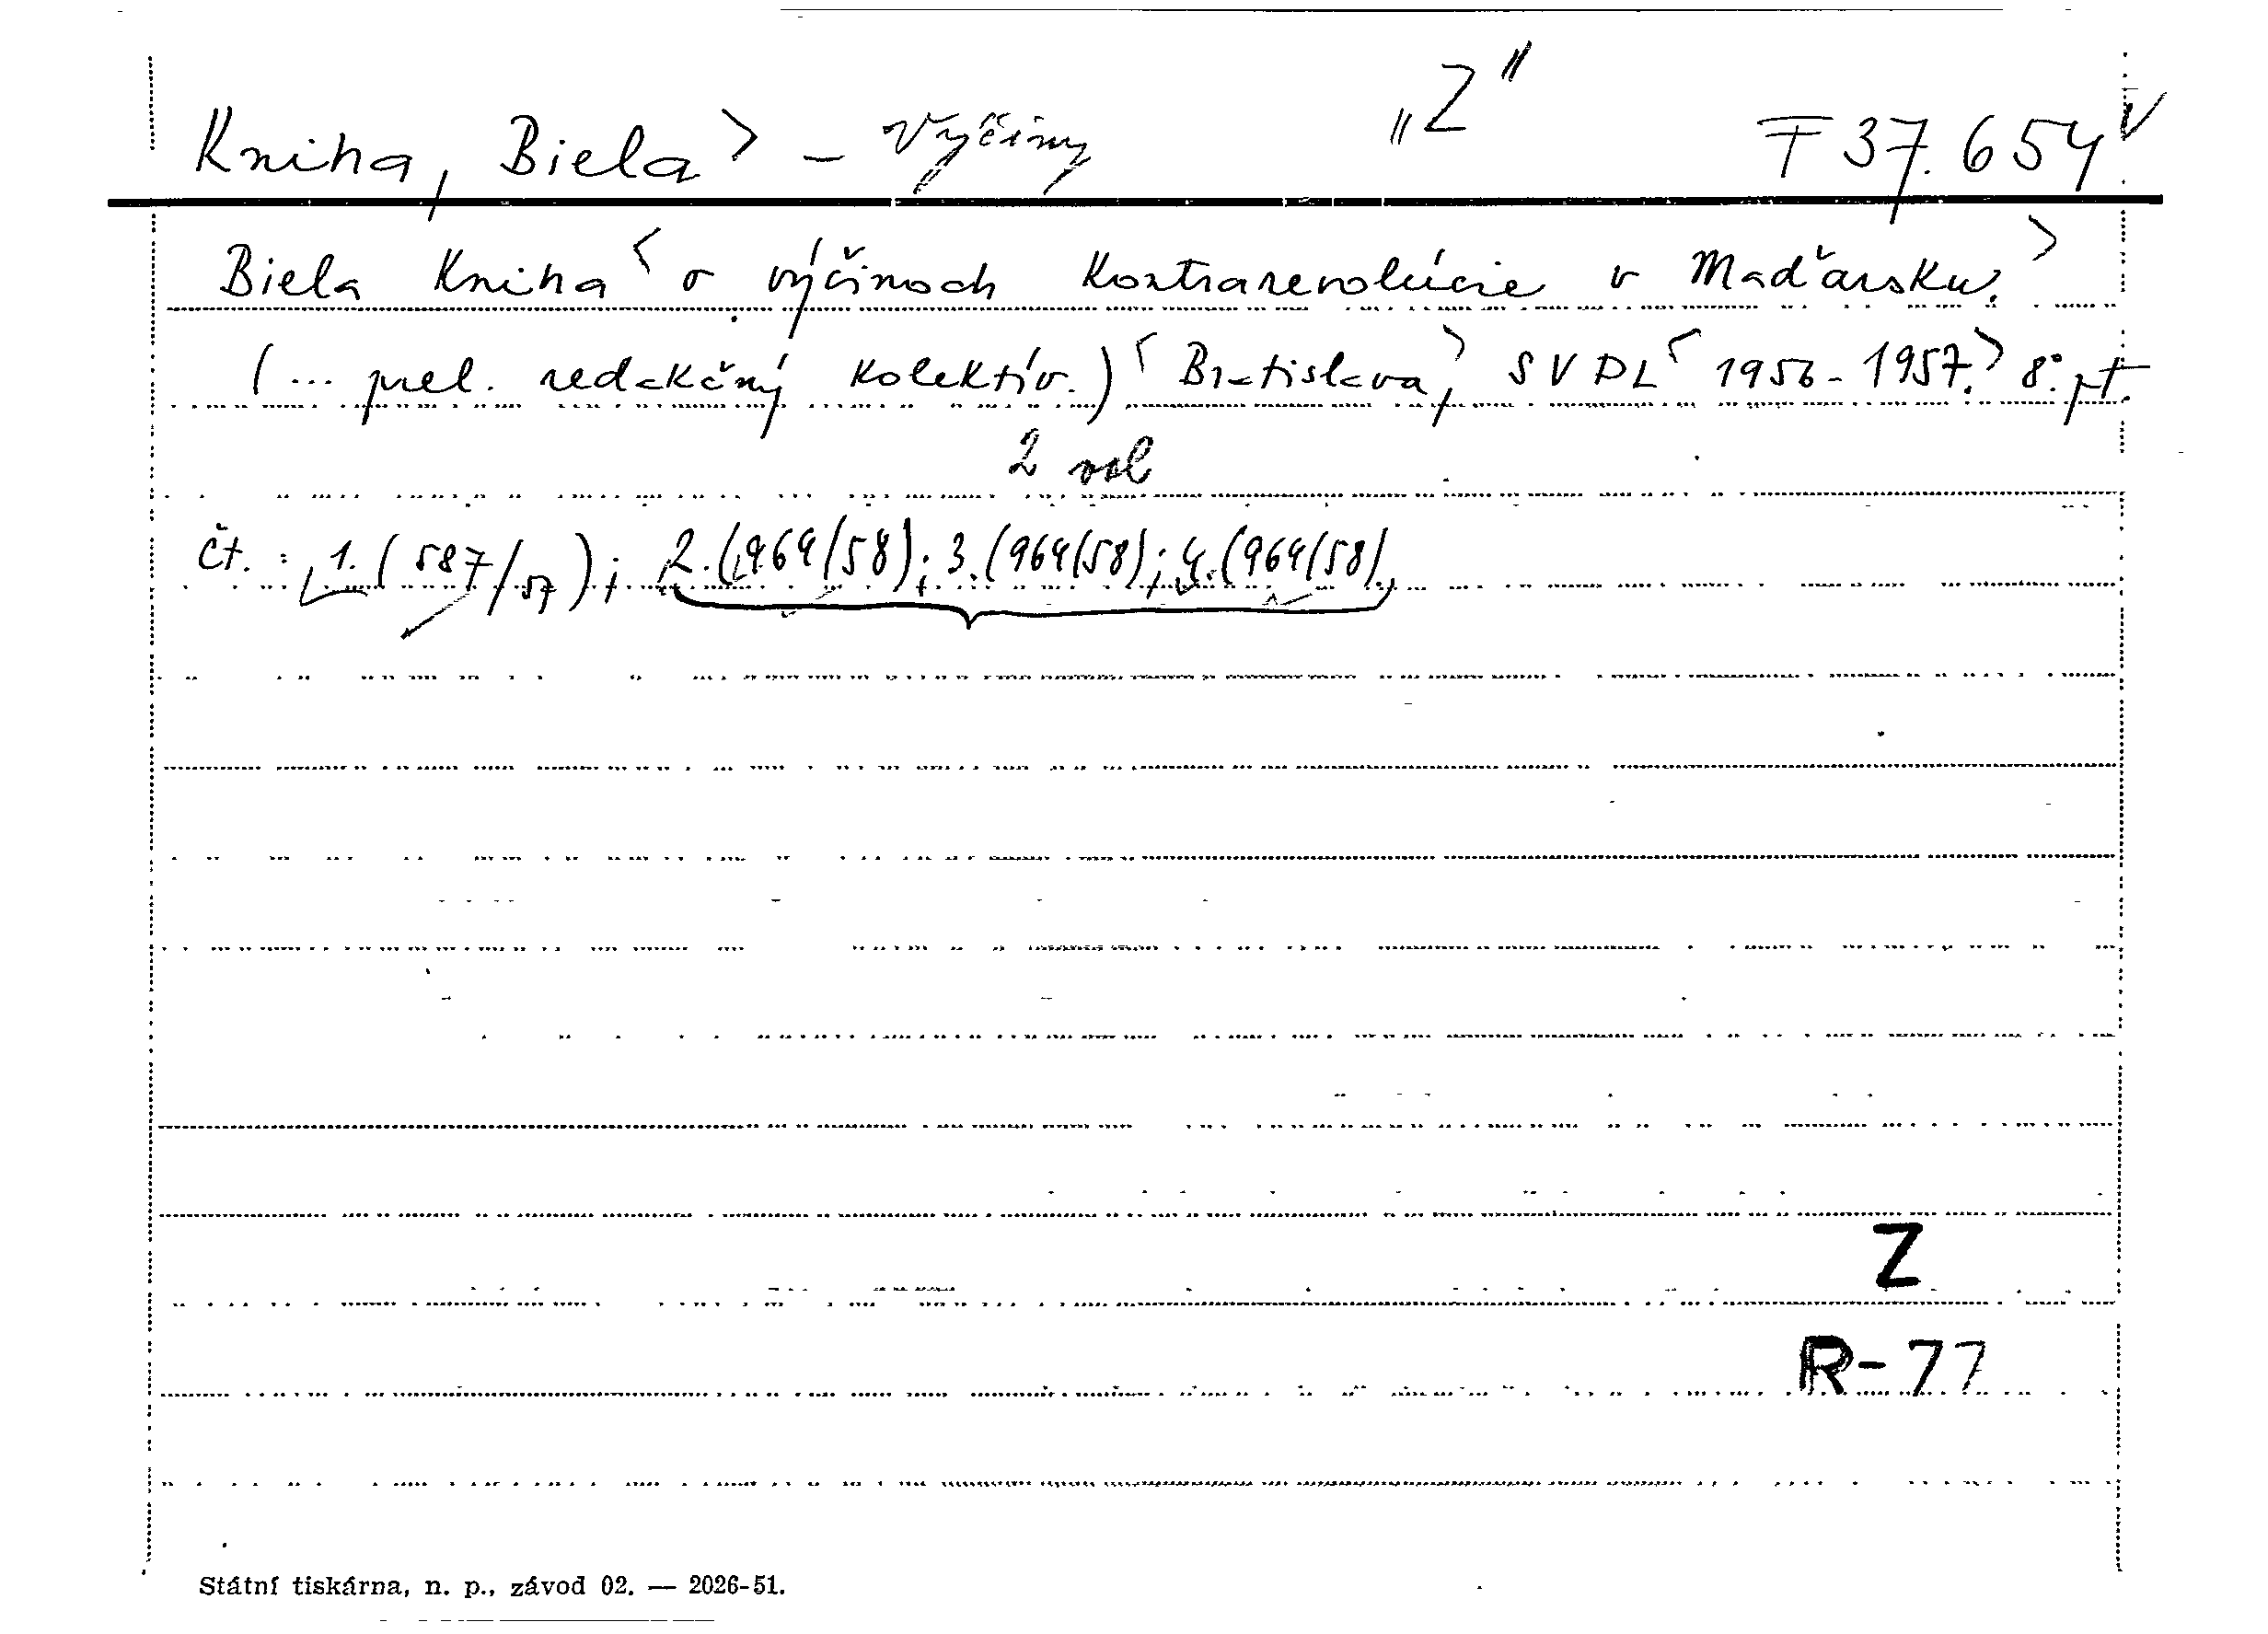 Kniha, Biela > - Výčiny „Z" F 37.654
Biela Kniha < o výčinoch kontrarevolúcie v Maďarsku. >
(... prel. redakčný kolektív.) < Bratislava, > SVDL < 1956-1957. > 8°. pt.
2 vol
Čt. : 1. (587/57); 2. (964/58); 3. (964/58); 4. (964/58)
Z
R-77
Státní tiskárna, n. p., závod 02. — 2026-51.